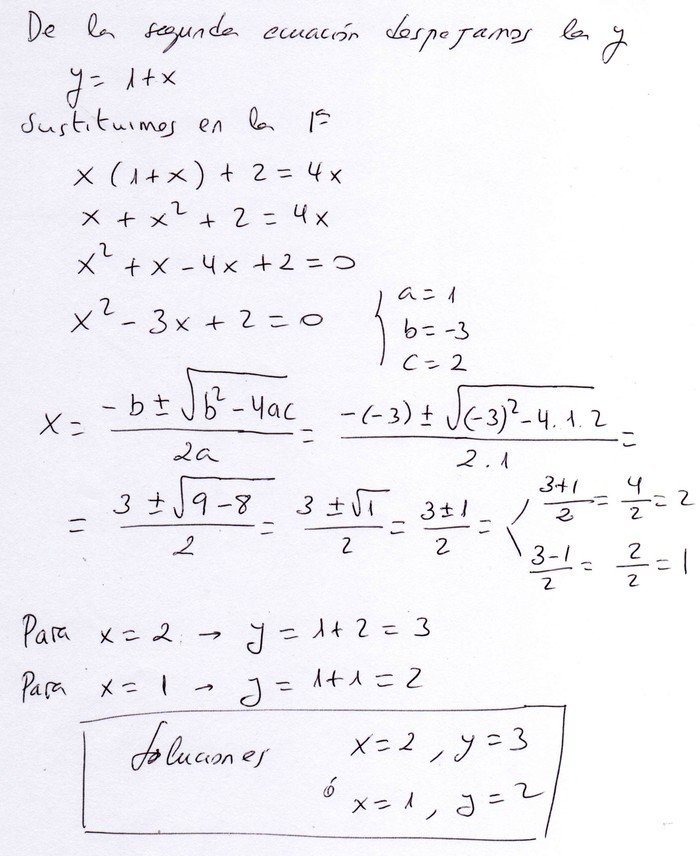 De la segunda ecuación despejamos la y
y = 1+x
Sustituimos en la 1ª
x (1+x) + 2 = 4x
x + x² + 2 = 4x
x² + x - 4x + 2 = 0
x² - 3x + 2 = 0 { a = 1
b = -3
c = 2
x = (-b ± √(b² - 4ac))/(2a) = (-(-3) ± √((-3)² - 4.1.2))/(2.1) =
= (3 ± √(9-8))/2 = (3 ± √1)/2 = (3±1)/2 = < (3+1)/2 = 4/2 = 2
(3-1)/2 = 2/2 = 1
Para x = 2 → y = 1+2 = 3
Para x = 1 → y = 1+1 = 2
Soluciones x=2, y=3
ó x=1, y=2